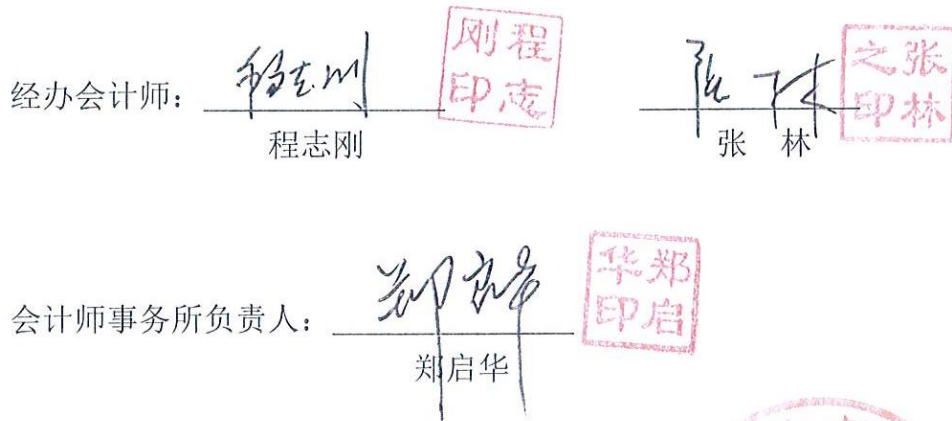 经办会计师： 程志刚 程志刚印 张林 张林之印
程志刚 张 林
会计师事务所负责人： 郑启华 郑启华印
郑启华